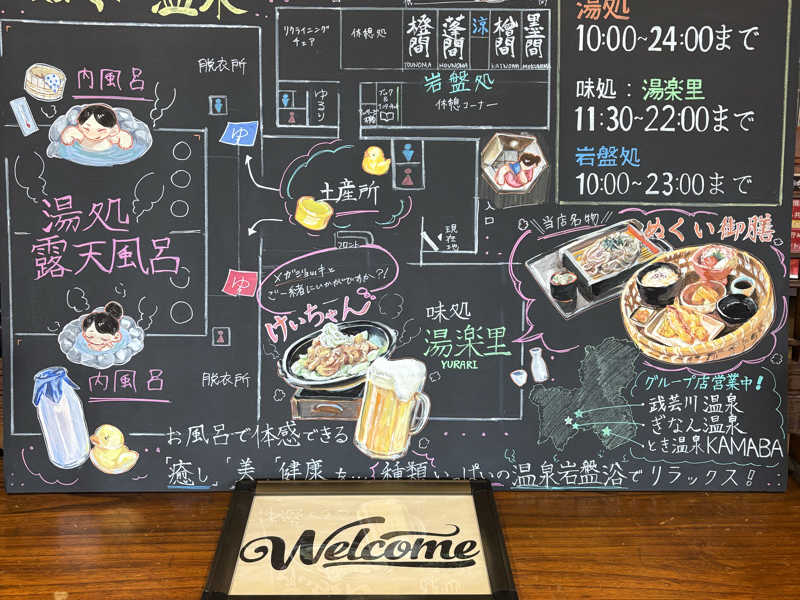 リクライニング
チェア
休憩処
橙間
TOUNOMA
蓬間
HOUNOMA
涼
檜間
墨間
湯処
10:00~24:00まで
味処：湯楽里
11:30~22:00まで
岩盤処
10:00~23:00まで
岩盤処
休憩コーナー
ゆるり
脱衣所
内風呂
ゆ
湯処
露天風呂
土産所
フロント
現在地
入口
ゆ
メガジョッキと
ご一緒にいかがですか?!
けいちゃん
味処
湯楽里
YURARI
当店名物
ぬくい御膳
内風呂
脱衣所
グループ店営業中!
武芸川温泉
ぎなん温泉
とき温泉KAMABA
お風呂で体感できる
「癒し」「美」「健康」を…種類いっぱいの温泉岩盤浴でリラックス!!
Welcome